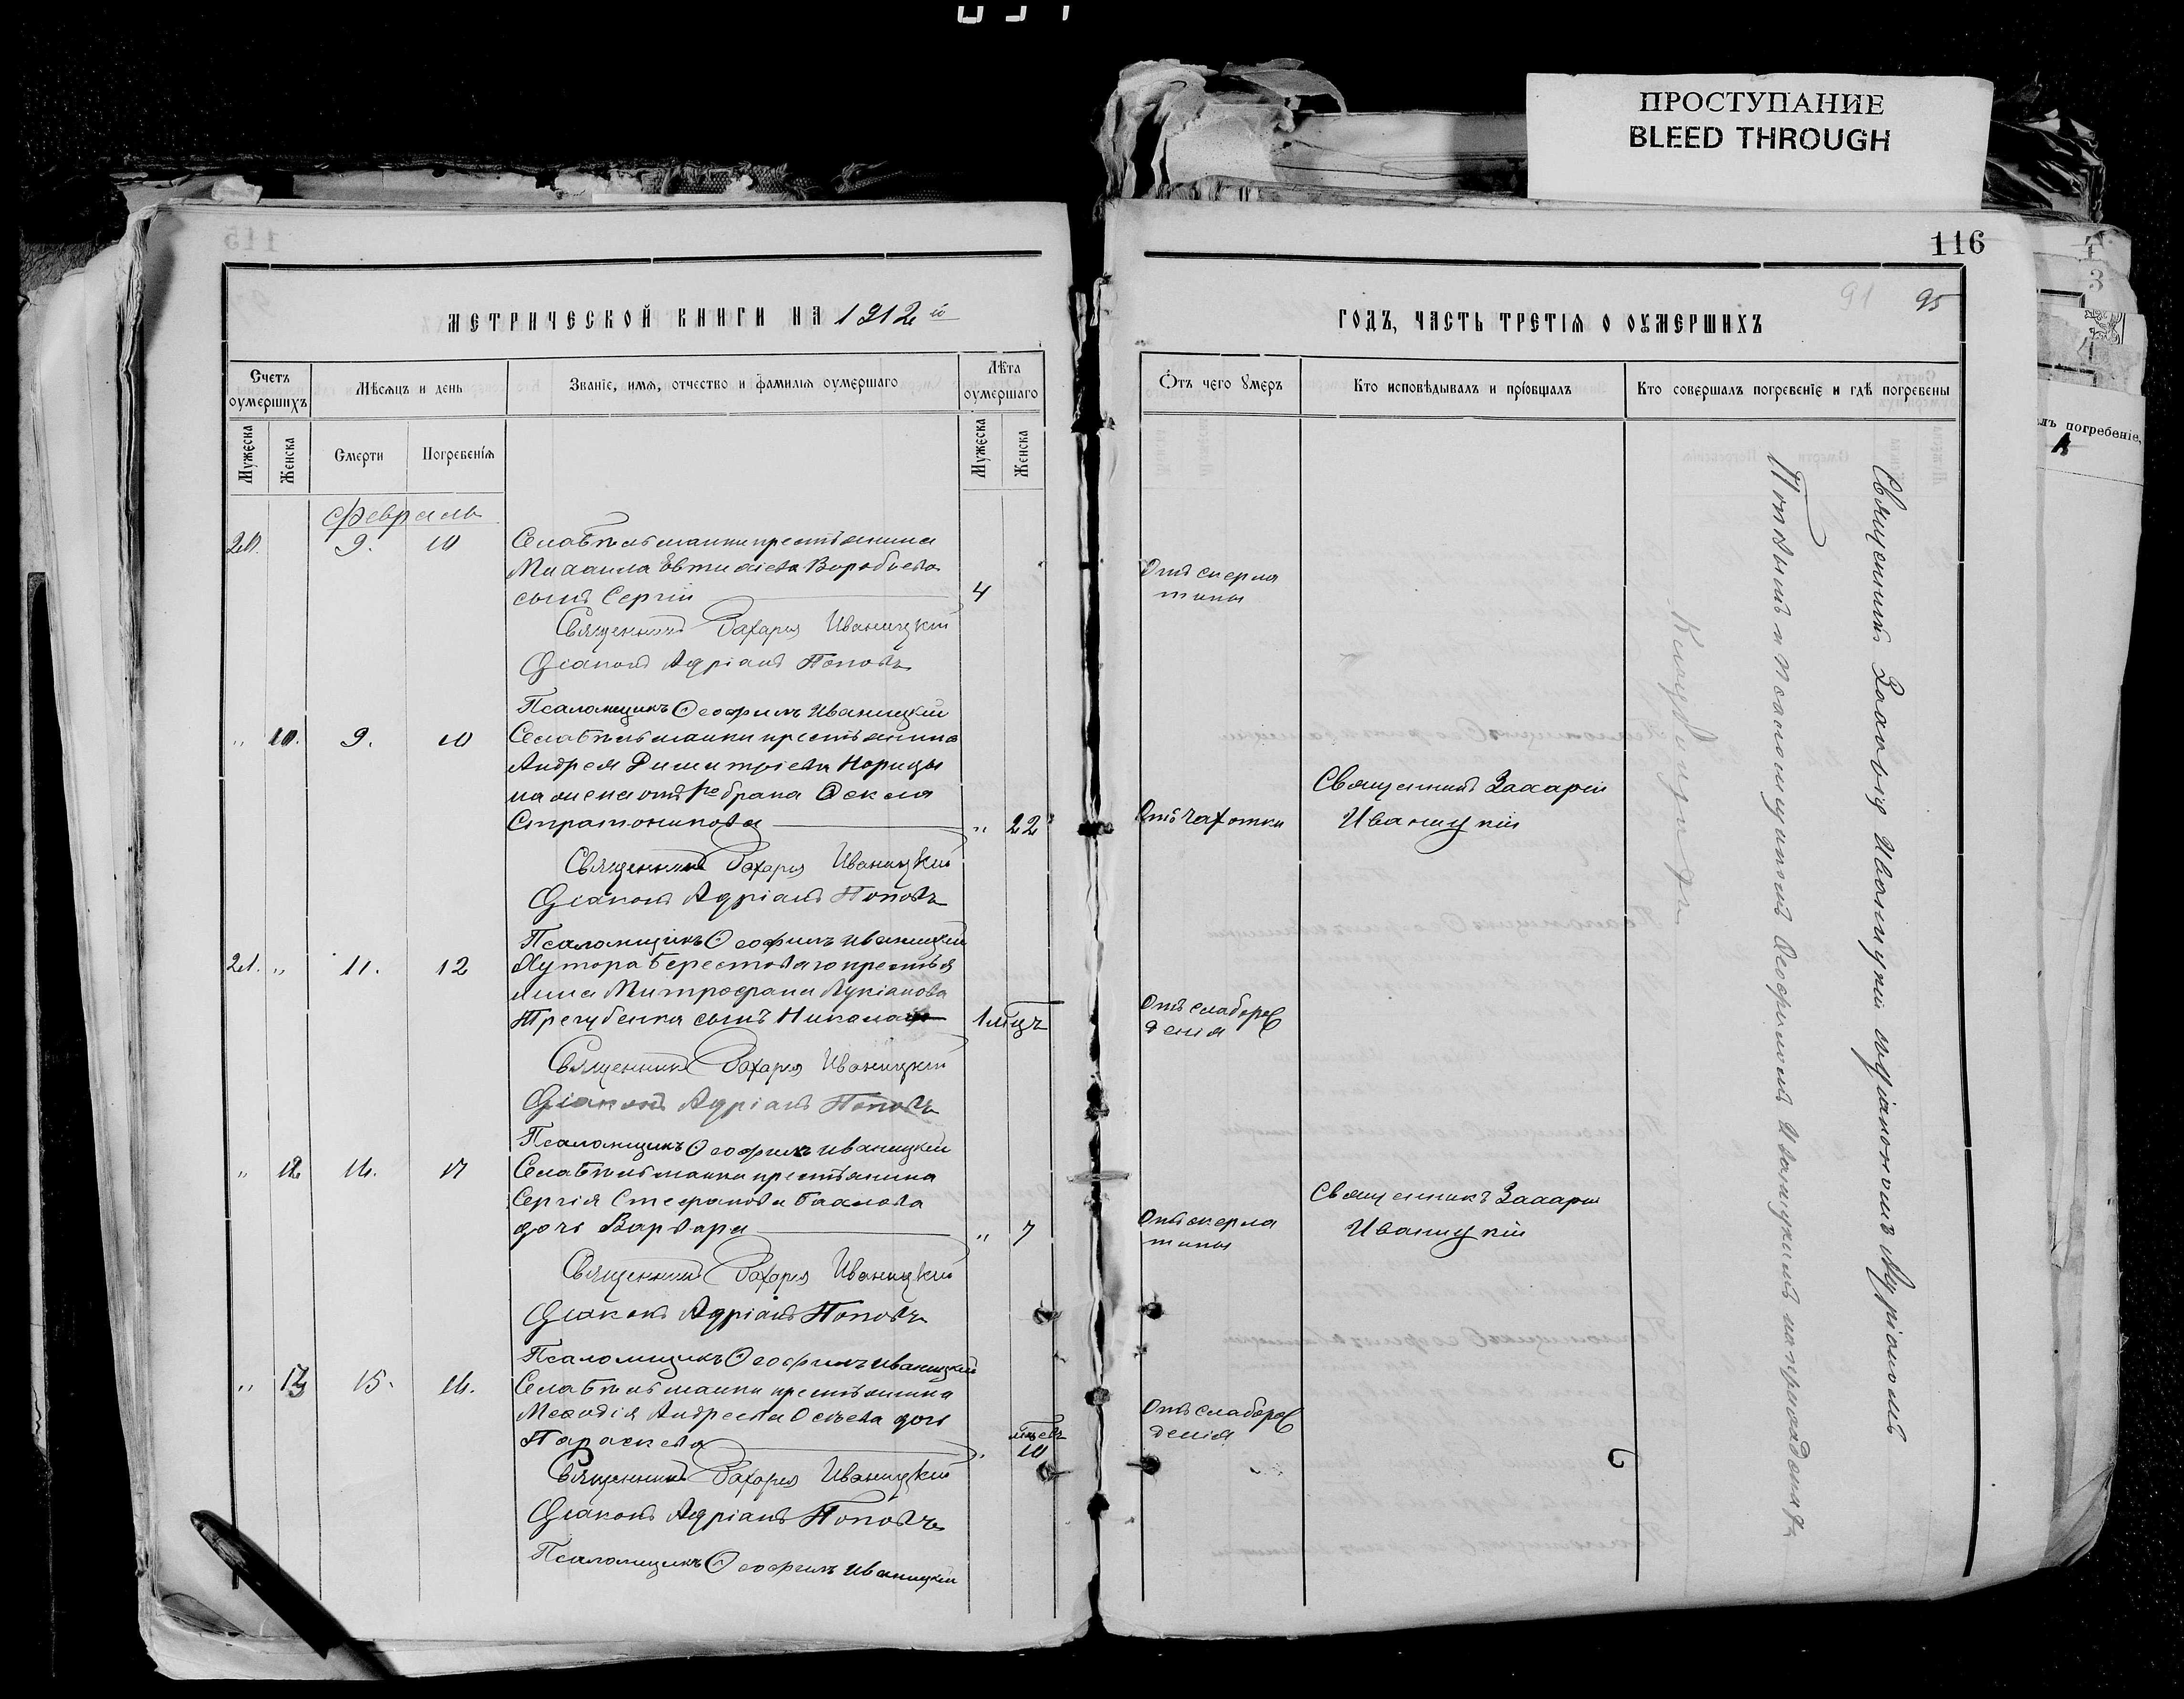 ПРОСТУПАНИЕ
BLEED THROUGH
116
91
95
МЕТРИЧЕСКОЙ КНИГИ НА 1912й
ГОДЪ, ЧАСТЬ ТРЕТІѦ О ОУМЕРШИХЪ
Счетъ оумершихъ
Мѣсѧцъ и день
Званіе, имѧ, отчество и фамилья оумершаго
Лѣта оумершаго
Ѿтъ чего Умеръ
Кто исповѣдывалъ и пріобщалъ
Кто совершалъ погребеніе и гдѣ погребены
Мужеска
Женска
Смерти
Погребеніѧ
Мужеска
Женска
лъ погребеніе,
Февраль
20. 9. 10 Села крестьянина
Михаила Евтихіева Воробьева
сынъ Сергій 4
Отъ скарла
тины
Священникъ Захарія Иваницкій
Діаконъ Адріанъ Поповъ
Псаломщикъ Ѳеофилъ Иваницкій
„ 10. 9. 10 Села крестьянина
Андрея Димитріева Норицы
жена отъ 1го брака Ѳекла
Стратоникова „ 22
Отъ чахотки
Священникъ Захарій
Иваницкій
Священникъ Захарія Иваницкій
Діаконъ Адріанъ Поповъ
Псаломщикъ Ѳеофилъ Иваницкій
21. „ 11. 12 Хутора Берестоваго крестья
нина Митрофана Лукіанова
Трегубенка сынъ Николай 1 мцъ
Отъ слаборо
денія
Священникъ Захарія Иваницкій
Діаконъ Адріанъ Поповъ
Псаломщикъ Ѳеофилъ Иваницкій
„ 12 16. 17 Села крестьянина
Сергія Стефанова
дочь Варвара „ 7
Отъ скарла
тины
Священникъ Захарій
Иваницкій
Священникъ Захарія Иваницкій
Діаконъ Адріанъ Поповъ
Псаломщикъ Ѳеофилъ Иваницкій
„ 13 15. 16. Села крестьянина
Меѳодія Андреева дочь
Параскева „ мцевъ 10
Отъ слаборо
денія
Священникъ Захарія Иваницкій
Діаконъ Адріанъ Поповъ
Псаломщикъ Ѳеофилъ Иваницкій
Священникъ Захарій Иваницкій съ діакономъ Адріаномъ
Поповымъ и псаломщикомъ Ѳеофиломъ Иваницкимъ на приходскомъ
кладбищѣ